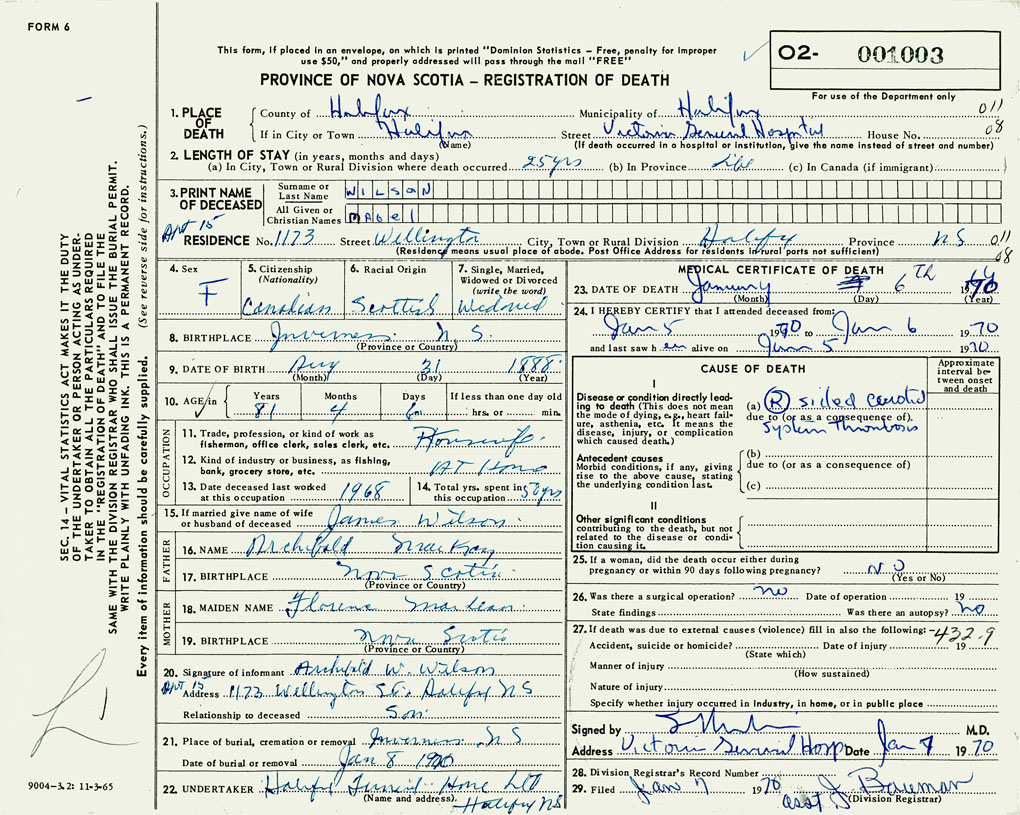 FORM 6
This form, if placed in an envelope, on which is printed "Dominion Statistics – Free, penalty for improper
use $50," and properly addressed will pass through the mail "FREE"
PROVINCE OF NOVA SCOTIA – REGISTRATION OF DEATH
O2- 001003
For use of the Department only
1. PLACE OF DEATH
County of Halifax Municipality of Halifax 011
If in City or Town Halifax Street Victoria General Hospital House No. 08
(Name) (If death occurred in a hospital or institution, give the name instead of street and number)
2. LENGTH OF STAY (in years, months and days)
(a) In City, Town or Rural Division where death occurred 25 yrs (b) In Province Life (c) In Canada (if immigrant)
3. PRINT NAME OF DECEASED
Surname or Last Name WILSON
All Given or Christian Names Mabel
Apt 15
RESIDENCE No. 1173 Street Wellington City, Town or Rural Division Halifax Province N S 011
(Residency means usual place of abode. Post Office Address for residents in rural parts not sufficient) 08
4. Sex F
5. Citizenship (Nationality) Canadian
6. Racial Origin Scottish
7. Single, Married, Widowed or Divorced (write the word) Widowed
8. BIRTHPLACE Inverness N. S.
(Province or Country)
9. DATE OF BIRTH Aug 31 1888
(Month) (Day) (Year)
10. AGE in Years Months Days If less than one day old
81 4 6 hrs. or min.
OCCUPATION
11. Trade, profession, or kind of work as
fisherman, office clerk, sales clerk, etc. Housewife
12. Kind of industry or business, as fishing,
bank, grocery store, etc. AT Home
13. Date deceased last worked
at this occupation 1968
14. Total yrs. spent in
this occupation 50 yrs
15. If married give name of wife
or husband of deceased James Wilson
FATHER
16. NAME Archibald MacKay
17. BIRTHPLACE Nova Scotia
(Province or Country)
MOTHER
18. MAIDEN NAME Florence MacLean
19. BIRTHPLACE Nova Scotia
(Province or Country)
20. Signature of informant Archibald W. Wilson
Apt 15
Address 1173 Wellington St. Halifax NS
Relationship to deceased Son
21. Place of burial, cremation or removal Inverness N S
Date of burial or removal Jan 8 1970
22. UNDERTAKER Halifax Funeral Home Ltd
(Name and address) Halifax NS
MEDICAL CERTIFICATE OF DEATH
23. DATE OF DEATH January 6 Th 1970
(Month) (Day) (Year)
24. I HEREBY CERTIFY that I attended deceased from:
Jan 5 1970 to Jan 6 1970
and last saw h er alive on Jan 5 1970
CAUSE OF DEATH
Approximate interval between onset and death
I
Disease or condition directly leading
to death (This does not mean
the mode of dying, e.g., heart failure,
asthenia, etc. It means the disease,
injury, or complication
which caused death.)
(a) (R) sided carotid
due to (or as a consequence of)
System thrombosis
Antecedent causes
Morbid conditions, if any, giving
rise to the above cause, stating
the underlying condition last.
(b)
due to (or as a consequence of)
(c)
II
Other significant conditions
contributing to the death, but not
related to the disease or condition
causing it.
25. If a woman, did the death occur either during
pregnancy or within 90 days following pregnancy? NO
(Yes or No)
26. Was there a surgical operation? no Date of operation 19
State findings Was there an autopsy? no
27. If death was due to external causes (violence) fill in also the following: 432.9
Accident, suicide or homicide? Date of injury 19
(State which)
Manner of injury
(How sustained)
Nature of injury
Specify whether injury occurred in industry, in home, or in public place
Signed by M.D.
Address Victoria General Hosp Date Jan 7 1970
28. Division Registrar's Record Number
29. Filed Jan 7 1970 asst J Bauman
(Division Registrar)
SEC. 14 – VITAL STATISTICS ACT MAKES IT THE DUTY
OF THE UNDERTAKER OR PERSON ACTING AS UNDERTAKER
TO OBTAIN ALL THE PARTICULARS REQUIRED
IN THE "REGISTRATION OF DEATH" AND TO FILE THE
SAME WITH THE DIVISION REGISTRAR WHO SHALL ISSUE THE BURIAL PERMIT.
WRITE PLAINLY WITH UNFADING INK. THIS IS A PERMANENT RECORD.
Every item of information should be carefully supplied. (See reverse side for instructions.)
9004-3.2: 11-3-65